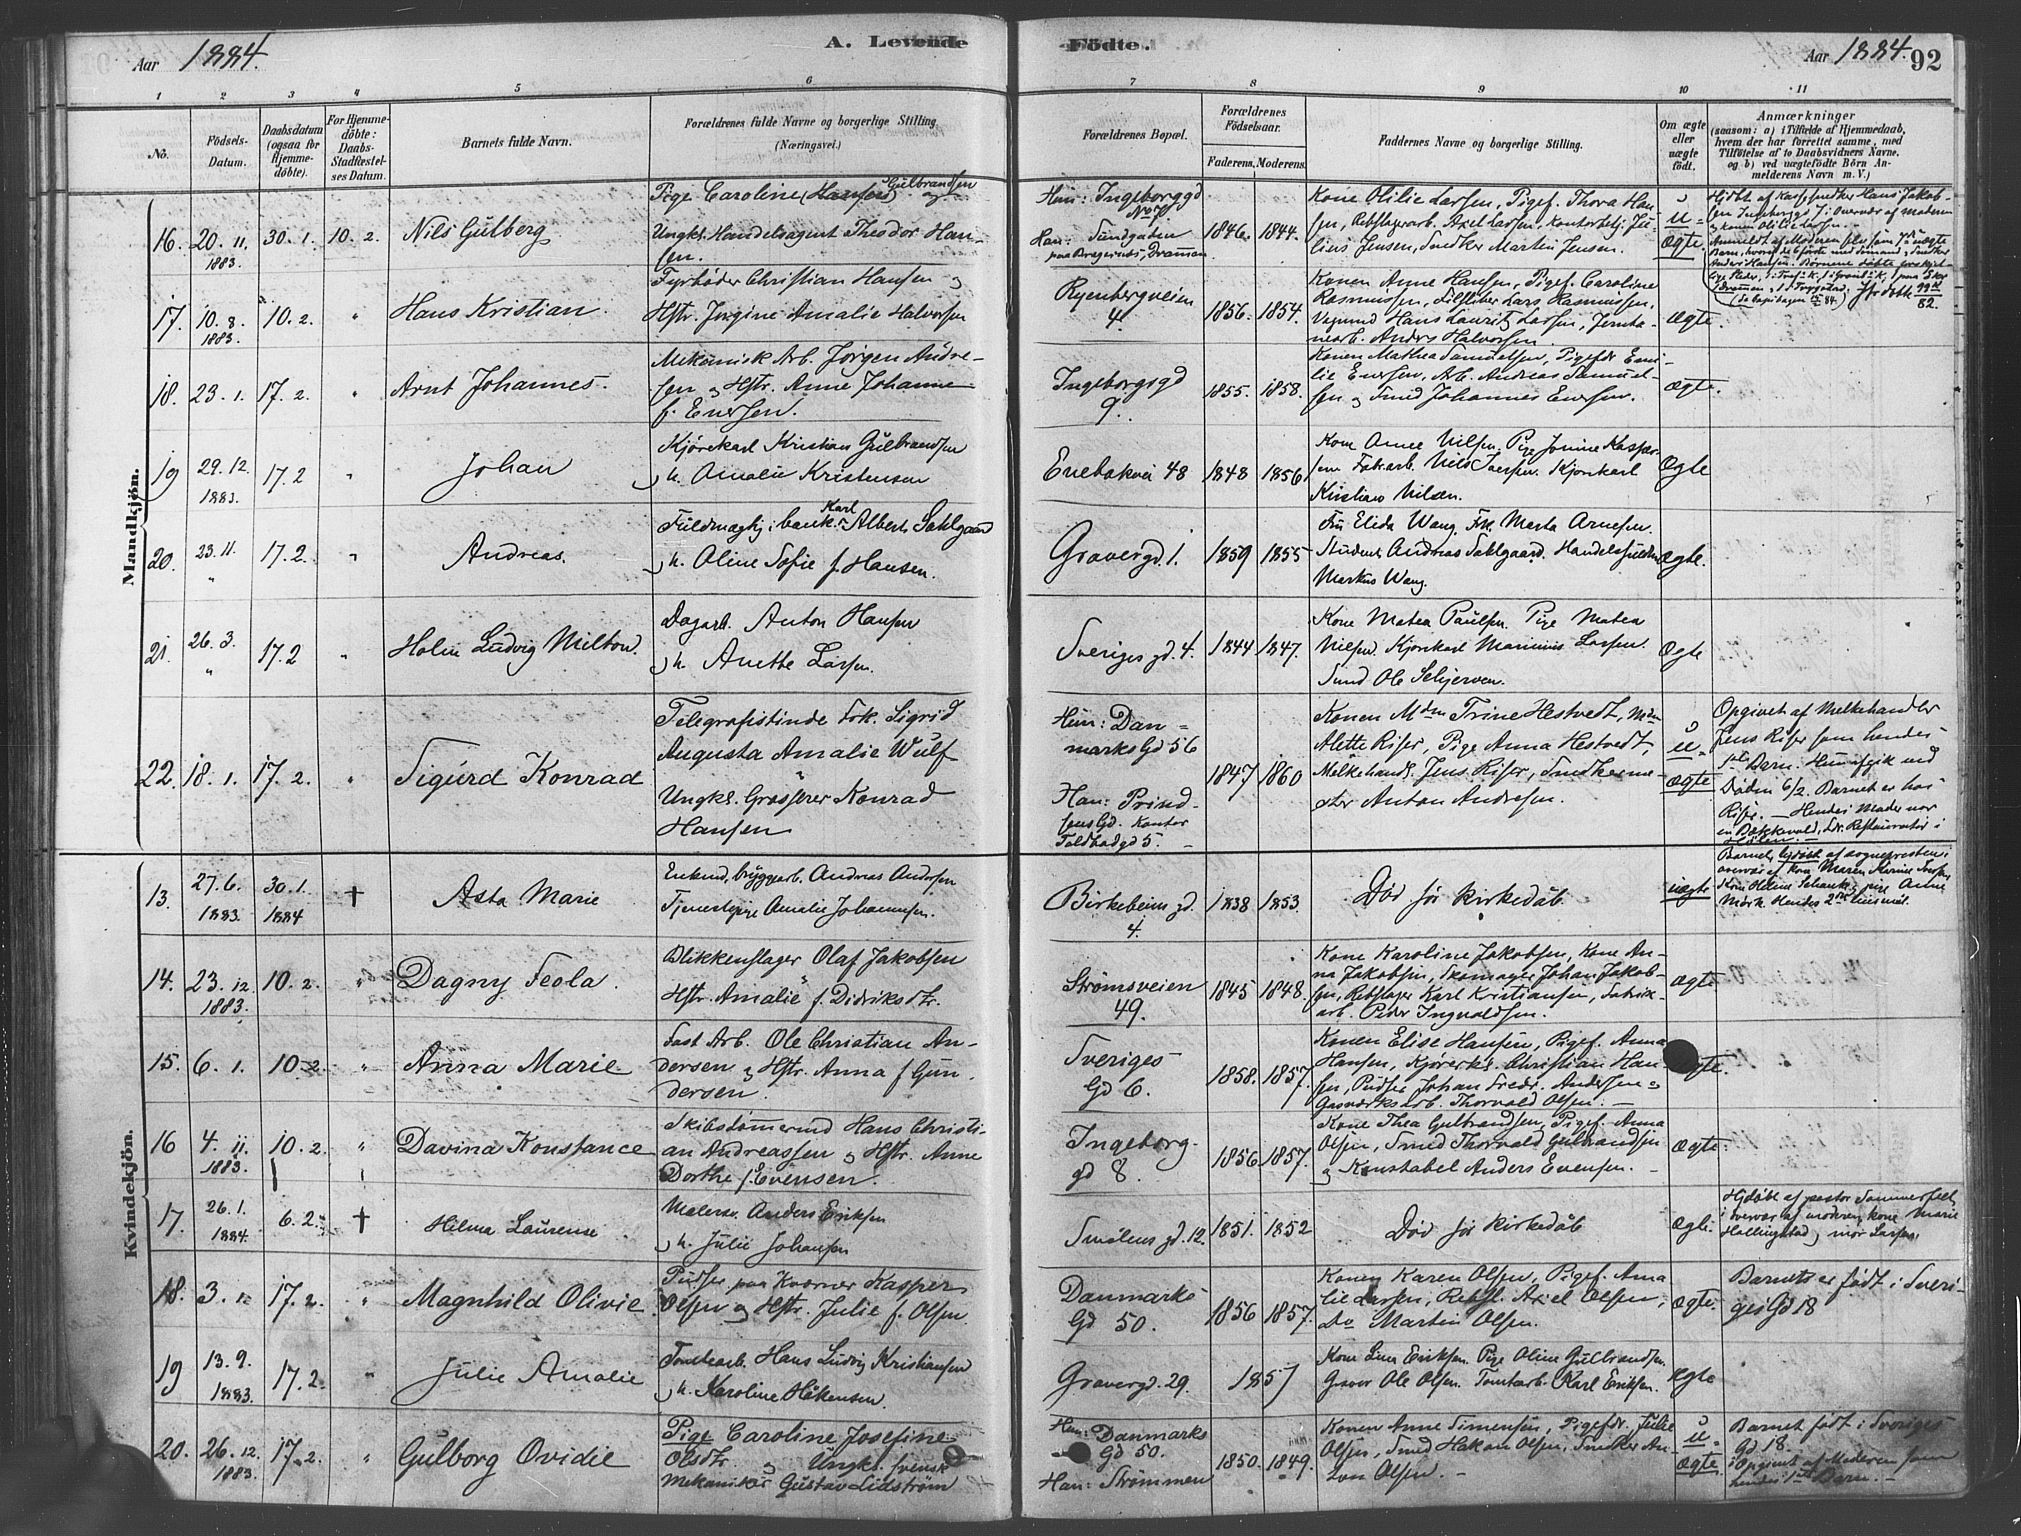 Aar 1884.
A. Levende
Födte.
Aar 1884.
92
1 2 3 4 5 6 7 8 9 10 11
No.
Födsels-
Datum.
Daabsdatum
(ogsaa for
Hjemme-
döbte).
For Hjemme-
döbte:
Daabs-
Stadfæstel-
ses Datum.
Barnets fulde Navn.
Forældrenes fulde Navne og borgerlige Stilling.
(Næringsvei.)
Forældrenes Bopæl.
Forældrenes
Födselsaar.
Faderens. Moderens.
Faddernes Navne og borgerlige Stilling.
Om ægte
eller
uægte
födt.
Anmærkninger
(saasom: a) i Tilfælde af Hjemmedaab,
hvem der har forrettet samme, med
Tilföielse af to Daabsvidners Navne,
og b) ved uægtefödte Börn An-
melderens Navn m. V.)
Mandkjön.
16. 20. 11. 1883. 30. 1. 10. 2.
Nils Gulberg
Pige Caroline (Hansen) Gulbrandsen og
Ungk. Handelsagent Theodor Han-
sen.
Hun: Ingeborggd
No 7
Han: Sundgaden
paa Bragernes, Drammen
1846. 1844.
Kone Olilie Larsen, Pigef. Thora Han-
sen, Rebslagerarb. Axel Larsen, Kontorbetj. Ju-
lius Jensen, Snedker Martin Jensen.
u-
ægte.
17. 10. 8. 1883. 10. 2. "
Hans Kristian.
Fyrbøder Christian Hansen og
Hstr. Jørgine Amalie Halvorsen
Ryenbergveien
4.
1856. 1854.
Konen Anne Hansen, Pigef. Caroline
Rasmussen, Filhugger Lars Rasmussen,
Vognmd Hans Lauritz Larsen, Jernba-
nearb. Anders Halvorsen.
ægte.
18. 23. 1. 17. 2. "
Arnt Johannes.
Mekanisk Arb. Jørgen Andre-
sen og Hstr. Anne Johanne
f. Enersen.
Ingeborgsgd
9.
1855. 1858.
Konen Mathea Samuelsen, Pigefdr. Emi-
lie Enersen, Arb. Andreas Samuel-
sen og Smed Johannes Enersen.
ægte.
19 29. 12. 1883. 17. 2 "
Johan
Kjørekarl Kristian Gulbrandsen
og h. Amalie Kristensen
Enebakvei 48
1848 1856
Kone Anne Nilsen. Pige Jonine Kasper-
sen. Fabrarb. Nils Iversen. Kjørekarl
Kristian Nilsen.
Ægte
20. 23. 11. " 17. 2. "
Andreas.
Fuldmægtig i bank. Karl Albert Sahlgaard
og h. Oline Sofie f. Hansen.
Gravergd. 1.
1859 1855
Fru Elida Wang. Frk. Marta Arnesen.
Student Andreas Sahlgaard. Handelsfuldm
Markus Wang.
ægte.
21. 26. 3. " 17. 2 "
Holm Ludvig Milton.
Dagarb. Anton Hansen
og h. Anette Larsen.
Sveriges gd. 4.
1844 1847.
Kone Matea Paulsen. Pige Matea
Nilsen. Kjørekarl Marinius Larsen.
Smed Ole Schjerven.
Ægte
22. 18. 1. 17. 2. "
Sigurd Konrad
Telegrafistinde Frk. Sigrid
Augusta Amalie Wulf
"
Ungk. Grosserer Konrad
Hansen
Hun: Dan-
marks Gd 56
Han: Prind-
sens Gd. Kontor
Toldbodgd 5.
1847 1860
Konen Mdm Trine Hestvedt, Mdm
Alette Riser, Pige Anna Hestvedt,
Melkehandl. Jens Riser, Snedkerme-
ster Anton Andresen.
u-
ægte
Opgivet af Melkehandler
Jens Riser som hendes
1ste Barn. Hun afgik ved
Døden 6/2. Barnet er hos
Riser. — Hendes Moder var
Kvindekjön.
13. 27. 6. 1883 30. 1. 1884 †
Asta Marie
Enkmd, bryggarb. Andreas Andersen
Tjenestpige Amalie Johannesen.
Birkebeins gd.
4.
1838 1853
Død før kirkedåb
uægte
Barnet hjdøbt af sognepresten i
overvær af Kone Maren Karine
14. 23. 12. 1883. 10. 2. "
Dagny Feola.
Blikkenslager Olaf Jakobsen
Hstr. Amalie f. Didriksdtr.
Strømsveien
49.
1845 1848.
Kone Karoline Jakobsen, Kone An-
na Jakobsen, Skomager Johan Jakob-
sen, Rebslager Karl Kristiansen, Fabrik-
arb. Peder Ingvaldsen.
ægte
15. 6. 1. 10. 2. "
Anna Marie.
Fast Arb. Ole Christian An-
dersen og Hstr. Anna f Gun-
dersen.
Sveriges
Gd 6.
1858. 1857.
Konen Elise Hansen, Pigef. Anna
Hansen, Kjørerk. Christian Han-
sen, Pudser Johan Fredr. Andersen og
Gasværksarb. Thorvald Olsen.
ægte.
16 4. 11. 1883. 10. 2. "
Davina Konstance
Skibstømmermd Hans Christi-
an Andreassen og Hstr. Anne
Dorthe f. Evensen.
Ingeborg-
gd 8.
1856 1857.
Kone Thea Gulbrandsen, Pigef. Anna
Olsen, Smed Thorvald Gulbrandsen
og Konstabel Anders Evensen.
ægte.
17. 26. 1. 1884. 6. 2. †
Hilma Laurense
Malersv. Anders Eriksen
og h. Julie Johansen
Smålens gd. 12.
1851. 1852
Død før kirkedåb
Ægte.
Hjdøbt af pastor Sommerfelt
i overvær af moderen, kone Marie
18. 3. 12 17. 2. "
Magnhild Olivie.
Pudser paa Kværner Kasper
Olsen og Hstr. Julie f. Olsen.
Danmarks
Gd 50.
1856 1857.
Konen Karen Olsen, Pigef. Ama
lie Larsen, Rebsl. Axel Olsen,
Do Martin Olsen.
ægte.
Barnet er født i Sveri-
ges Gd 18
19 13. 9. 1883. 17. 2. "
Julie Amalie
Tomtearb. Hans Ludvig Kristiansen
og h. Karoline Håkensen.
Gravergd. 29.
1857
Kone Lina Eriksen. Pige Oline Gulbrandsen.
Graver Ole Olsen. Tomtarb. Karl Eriksen.
Ægte
20. 26. 12. 1883. 17. 2. "
Gulborg Ovidie
Pige Caroline Josefine
Olsdtr. og Ungk. svensk
Mekaniker Gustav Lidstrøm
Hun: Danmarks
Gd 50.
Han: Strømmen
1850. 1849.
Konen Anne Simensen, Pigefdr. Julie
Olsen, Smed Hakon Olsen, Snedker An-
ton Olsen.
u-
ægte
Barnet født i Sveriges
Gd 18.
Opgivet af Moderen som
hendes 1ste Barn.